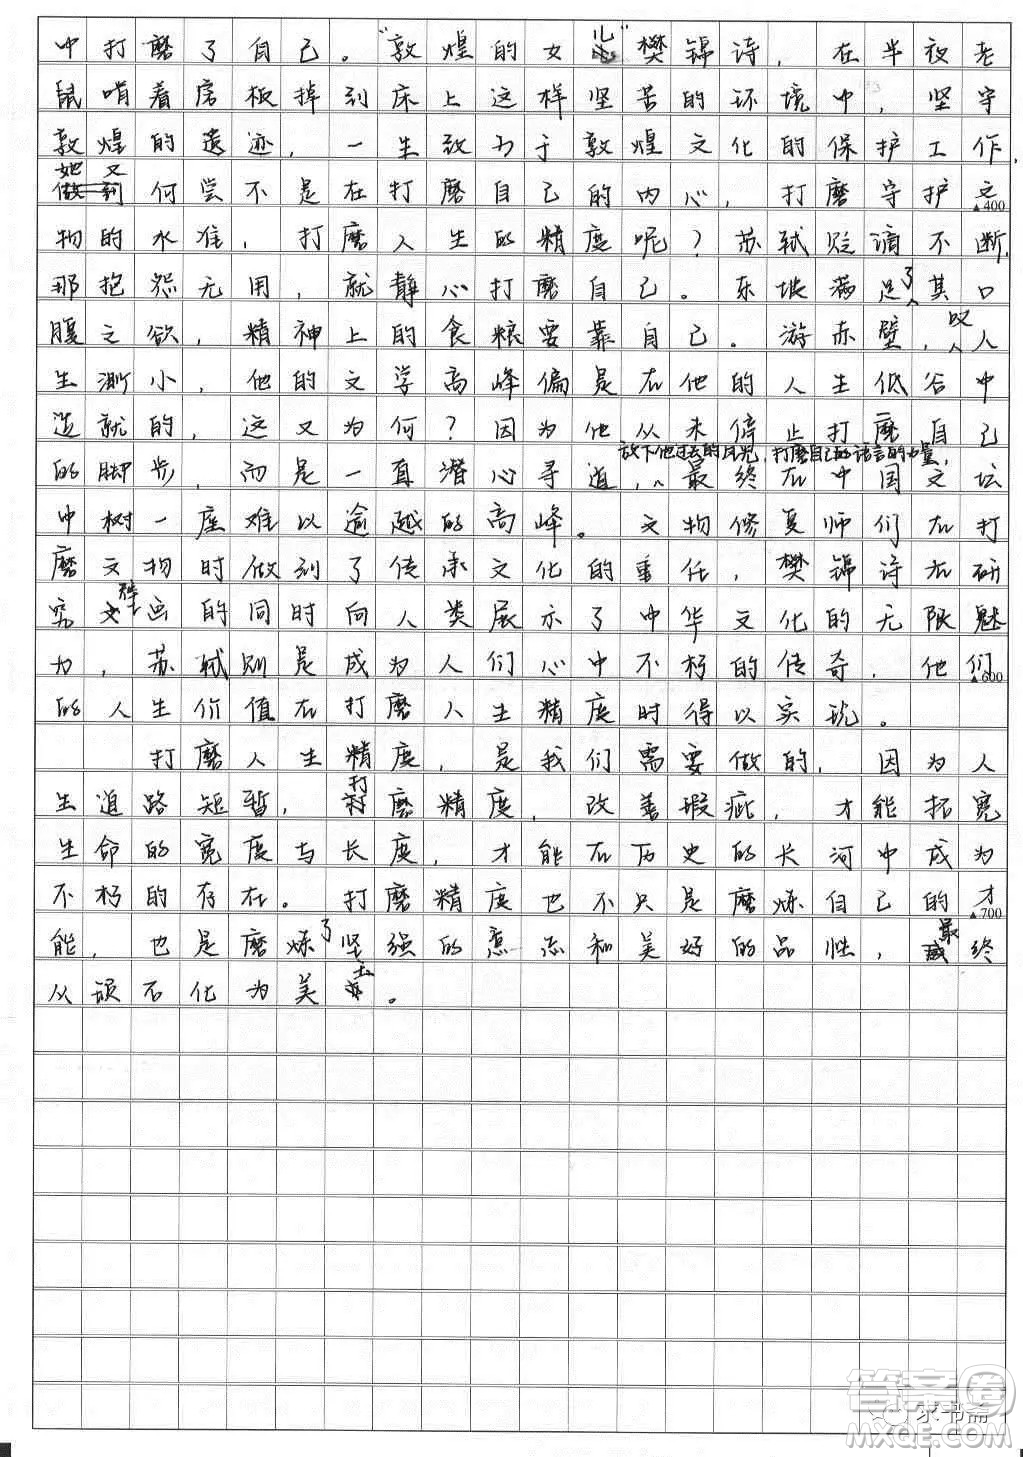 中打磨了自己。“敦煌的女儿”樊锦诗，在半夜老
鼠啃着房板掉到床上这样坚苦的环境中，坚守
敦煌的遗迹，一生致力于敦煌文化的保护工作，
她又何尝不是在打磨自己的内心，打磨守护文
▲400
物的水准，打磨人生的精度呢？苏轼贬谪不断，
那抱怨无用，就静心打磨自己。东坡满足了其口
腹之欲，精神上的食粮要靠自己。游赤壁，叹人
生渺小，他的文学高峰偏是在他的人生低谷中
造就的，这又为何？因为他从未停止打磨自己
的脚步，而是一直潜心寻道，放下他过去的月光，打磨自己的语言的力量，最终在中国文坛
中树一座难以逾越的高峰。文物修复师们在打
磨文物时做到了传承文化的重任，樊锦诗在研
究壁画的同时向人类展示了中华文化的无限魅
力，苏轼则是成为人们心中不朽的传奇，他们
▲600
的人生价值在打磨人生精度时得以实现。
打磨人生精度，是我们需要做的，因为人
生道路短暂，打磨精度，改善瑕疵，才能拓宽
生命的宽度与长度，才能在历史的长河中成为
不朽的存在。打磨精度也不只是磨炼自己的才
▲700
能，也是磨炼了坚强的意志和美好的品性，最终
从顽石化为美玉。
答案圈
求书斋
MXQE.COM